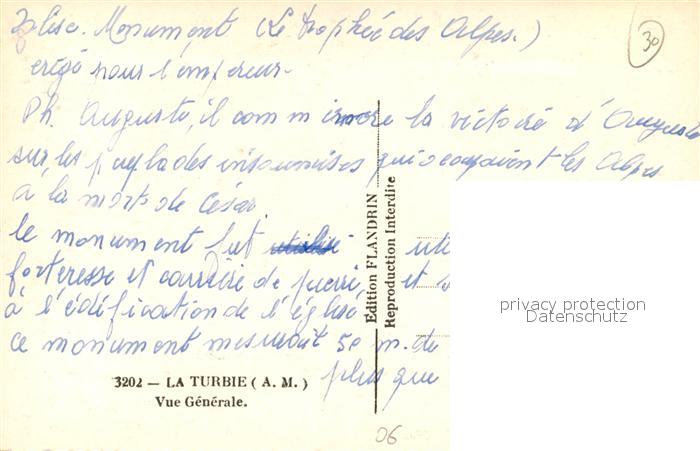 Eglise. Monument (Le trophée des Alpes.)
30
erigé pour l'empereur.
Ph. Auguste, il comm la victoire d'Auguste
sur les insoumises qui occupaient les Alpes
à la mort de César
le monument fut utilisé uti
forteresse et carrière de pierre, et
à l'édification de l'église,
ce monument mesurait 50 m. de
plus que
Edition FLANDRIN
Reproduction Interdite
privacy protection
Datenschutz
3202 — LA TURBIE (A. M.)
Vue Générale.
06